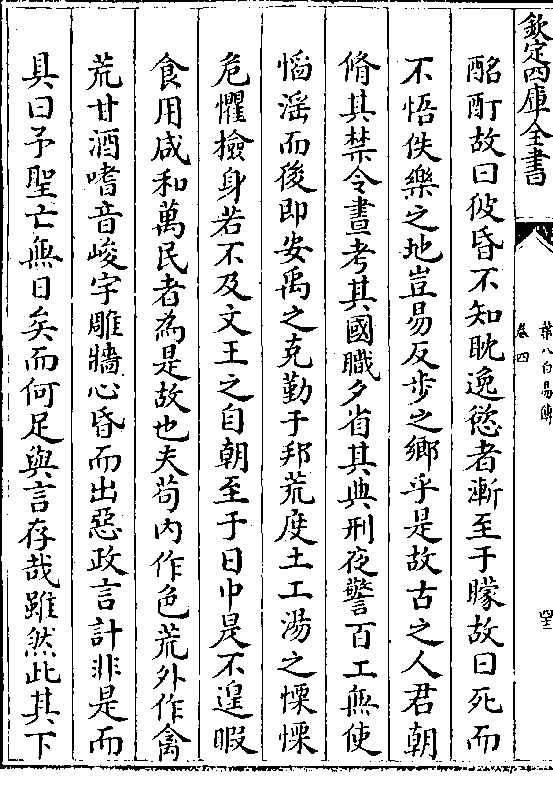 欽定四庫全書
葉八白易傳
卷四
酩酊故曰彼昏不知耽逸慾者漸至于矇故曰死而
不悟佚樂之地豈易反步之鄉乎是故古之人君朝
脩其禁令晝考其國職夕省其典刑夜警百工無使
慆滛而後即安禹之克勤于邦荒度土工湯之慄慄
危懼檢身若不及文王之自朝至于日中是不遑暇
食用咸和萬民者為是故也夫苟内作色荒外作禽
荒甘酒嗜音峻宇雕牆心昏而出惡政言計非是而
具曰予聖亡無日矣而何足與言存哉雖然此其下